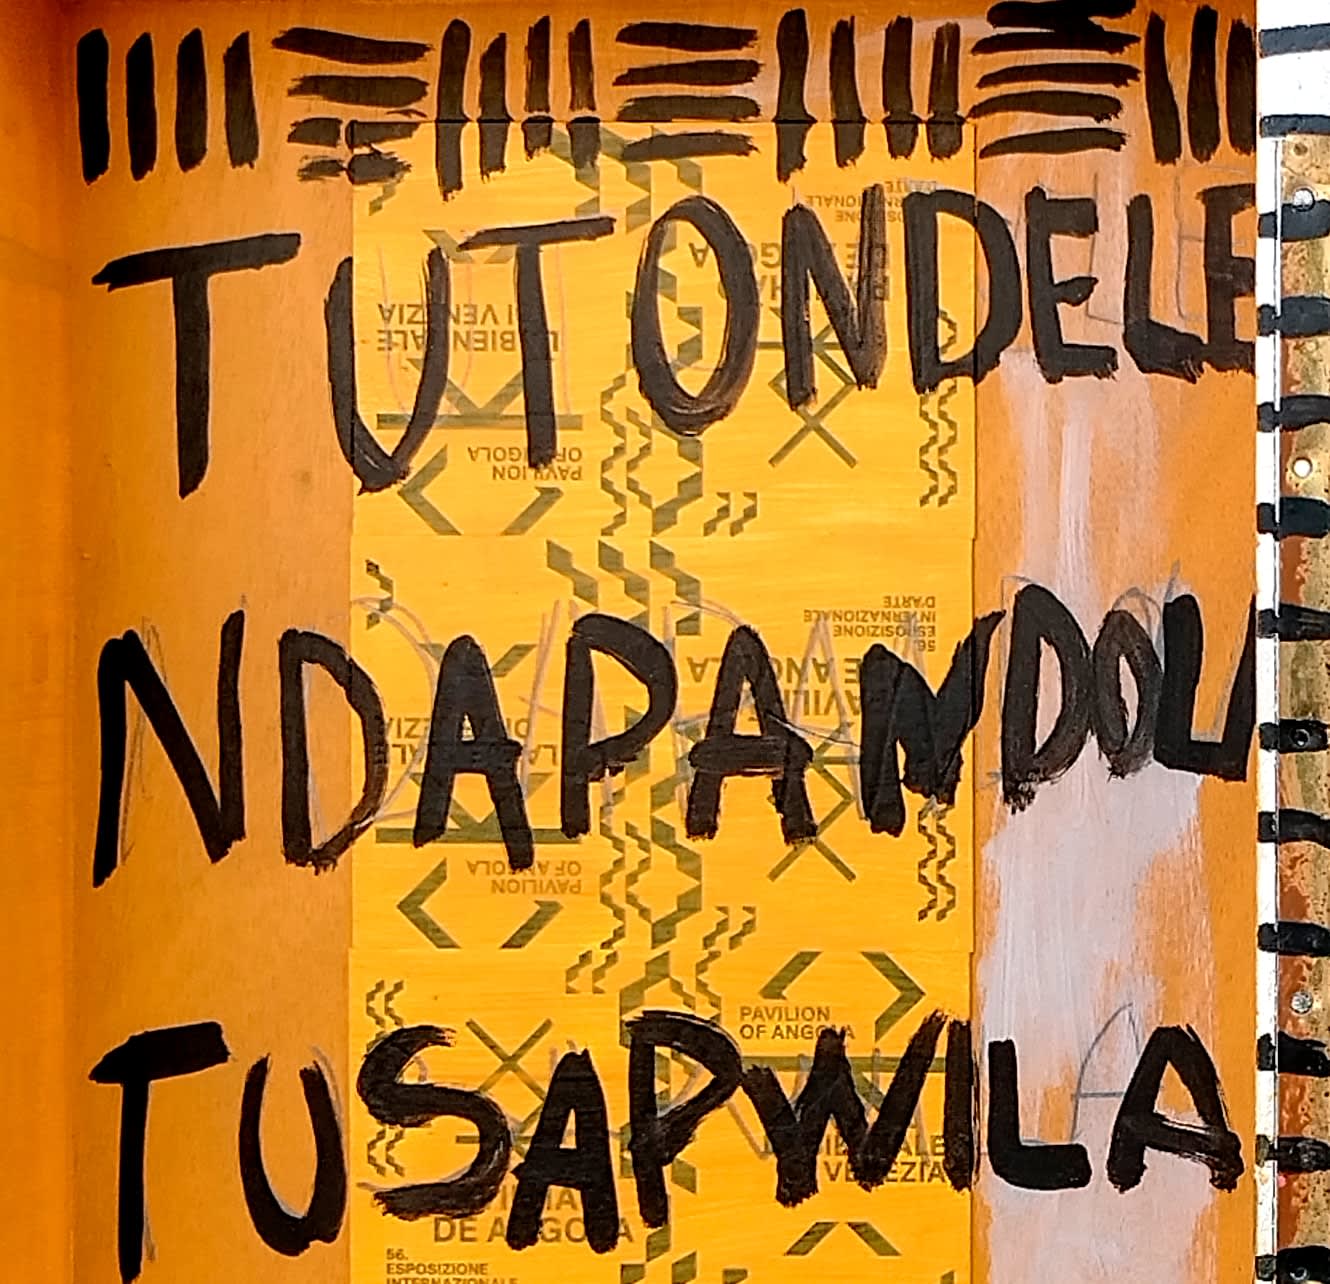 TUTONDELE
LA BIENNALE
DI VENEZIA
PAVILION
OF ANGOLA
NDAPANDOLA
56.
ESPOSIZIONE
INTERNAZIONALE
D'ARTE
LA BIENNALE
DI VENEZIA
PAVILION
OF ANGOLA
PAVILION
OF ANGOLA
TUSAPWILA
VENEZIA
DE ANGOLA
56.
ESPOSIZIONE
INTERNAZIONALE